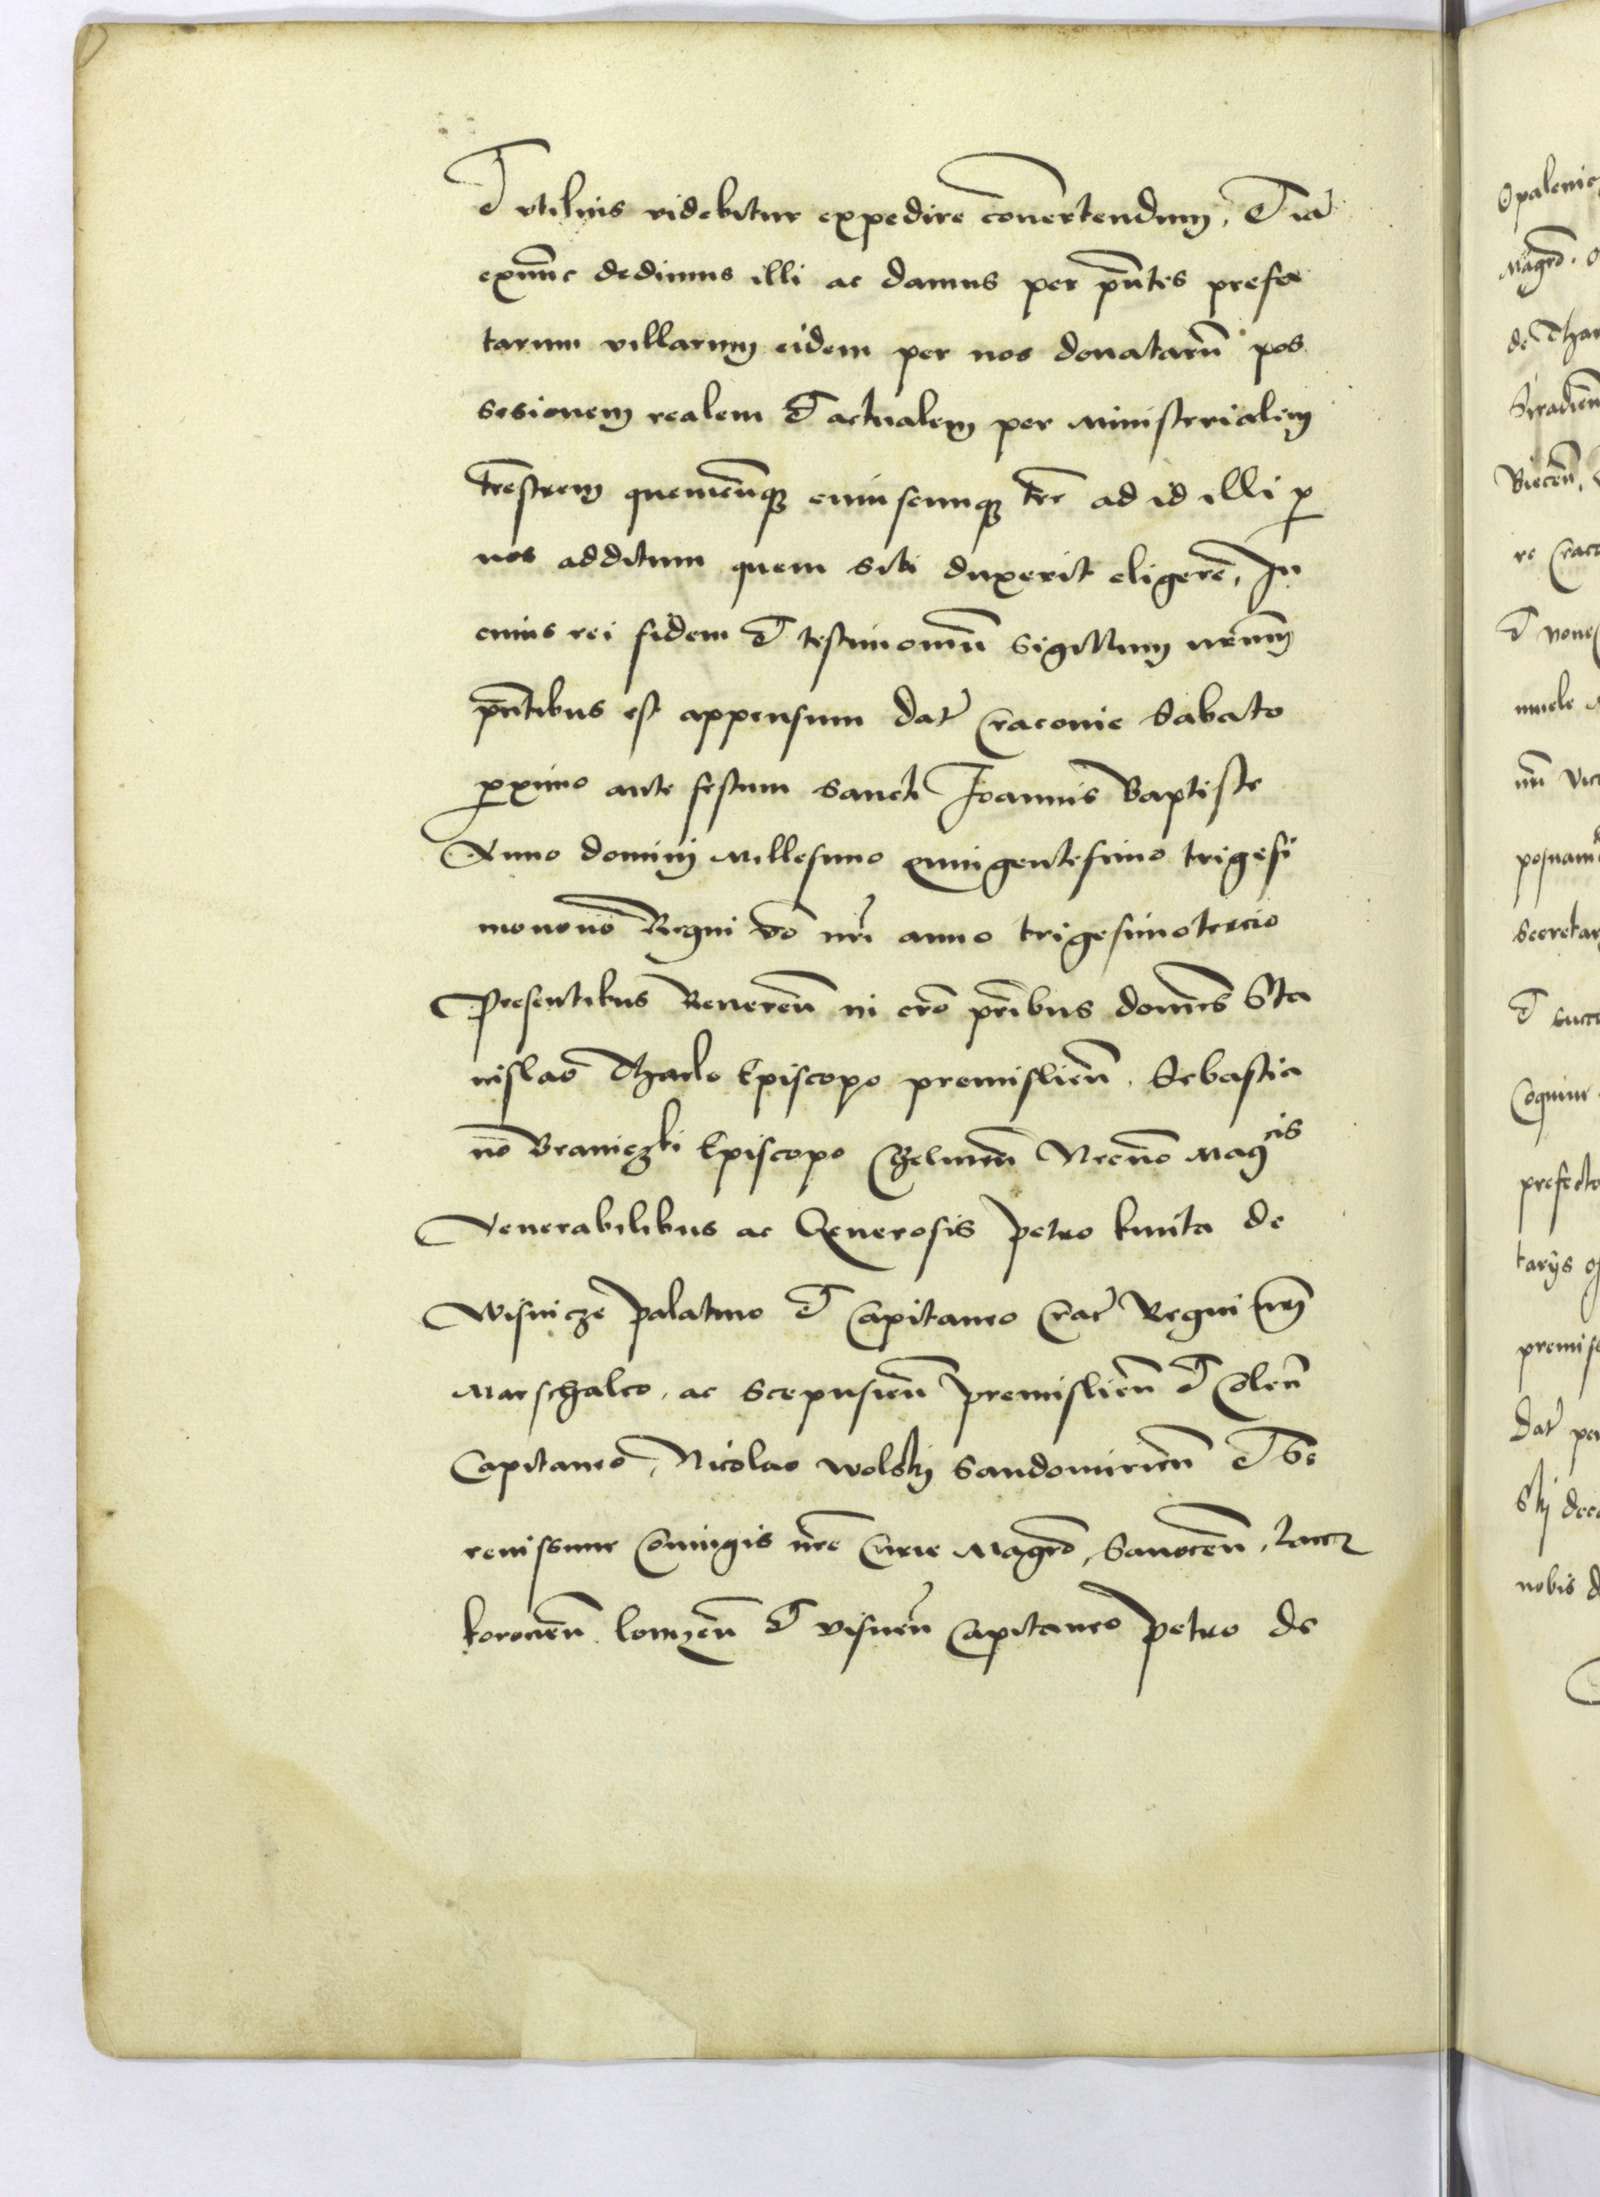 Et utilius videbitur expedire convertendum, Et ia
exnunc dedimus illi ac damus per pntes prefa
tarum villarum eidem per nos donatarũ pos
sesionem realem Et actualem per Ministerialem
trestrem quemcunq cuiuscunq tre ad id illi p
nos additum quem sibi duxerit eligere, In
cuius rei fidem Et testimoniũ Sigillum nrum
pntibus est appensum dat Cracovie Sabato
proximo ante festum Sancti Joannis Baptiste
Anno domini Millesimo quingentesimo trigesi
monono Regni vo nri anno trigesimotercio
Presentibus Reveren in cro pribus domis Sta
nislao Tharlo Episcopo premislien, Sebastia
no Braniczki Episcopo Chelmen Necno Magcis
Venerabilibus ac Generosis Petro kmita de
Wisnicze Palatino Et Capitaneo Crac Regni nri
Marschalco, ac Scepusien Premislien Et Colen
Capitaneo, Nicolao Wolskj Sandomirien Et Se
renissime Coniugis nre Curie Magro, Sanocen, Lancz
koronen lomzen Et visnen Capitaneo Petro de
Opalenic
Magro.
de
Siradien
Biecen,
re Crac
Et
nuele
posnam
Secretar
Et succ
prefecto
tarys
premis
Dat
skj
nobis d